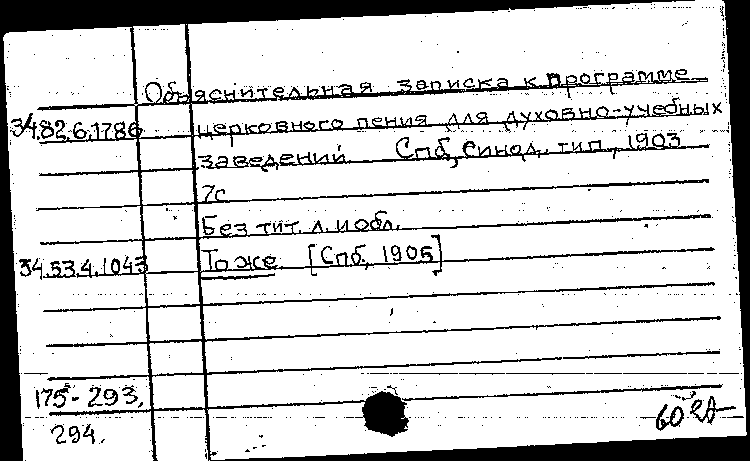 Объяснительная записка к программе
34.82.6.1786 церковного пения для духовно-учебных
заведений. Спб, Синод. тип., 1903
7с
Без тит. л. и обл.
34.53.4.1043 То же. [Спб, 1905]
175-293,
294.